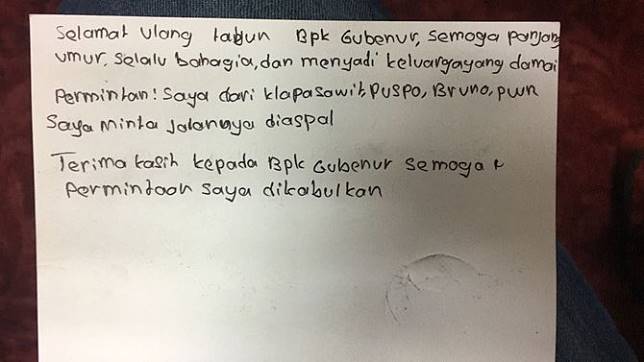 Selamat Ulang tahun Bpk Gubenur, semoga panjang
umur, selalu bahagia, dan menyadi keluarga yang damai
Permintan! Saya dari klapasawit, Puspo, Bruno, pwn
Saya minta jalannya diaspal
Terima kasih kepada Bpk Gubenur semoga
Permintaan saya dikabulkan